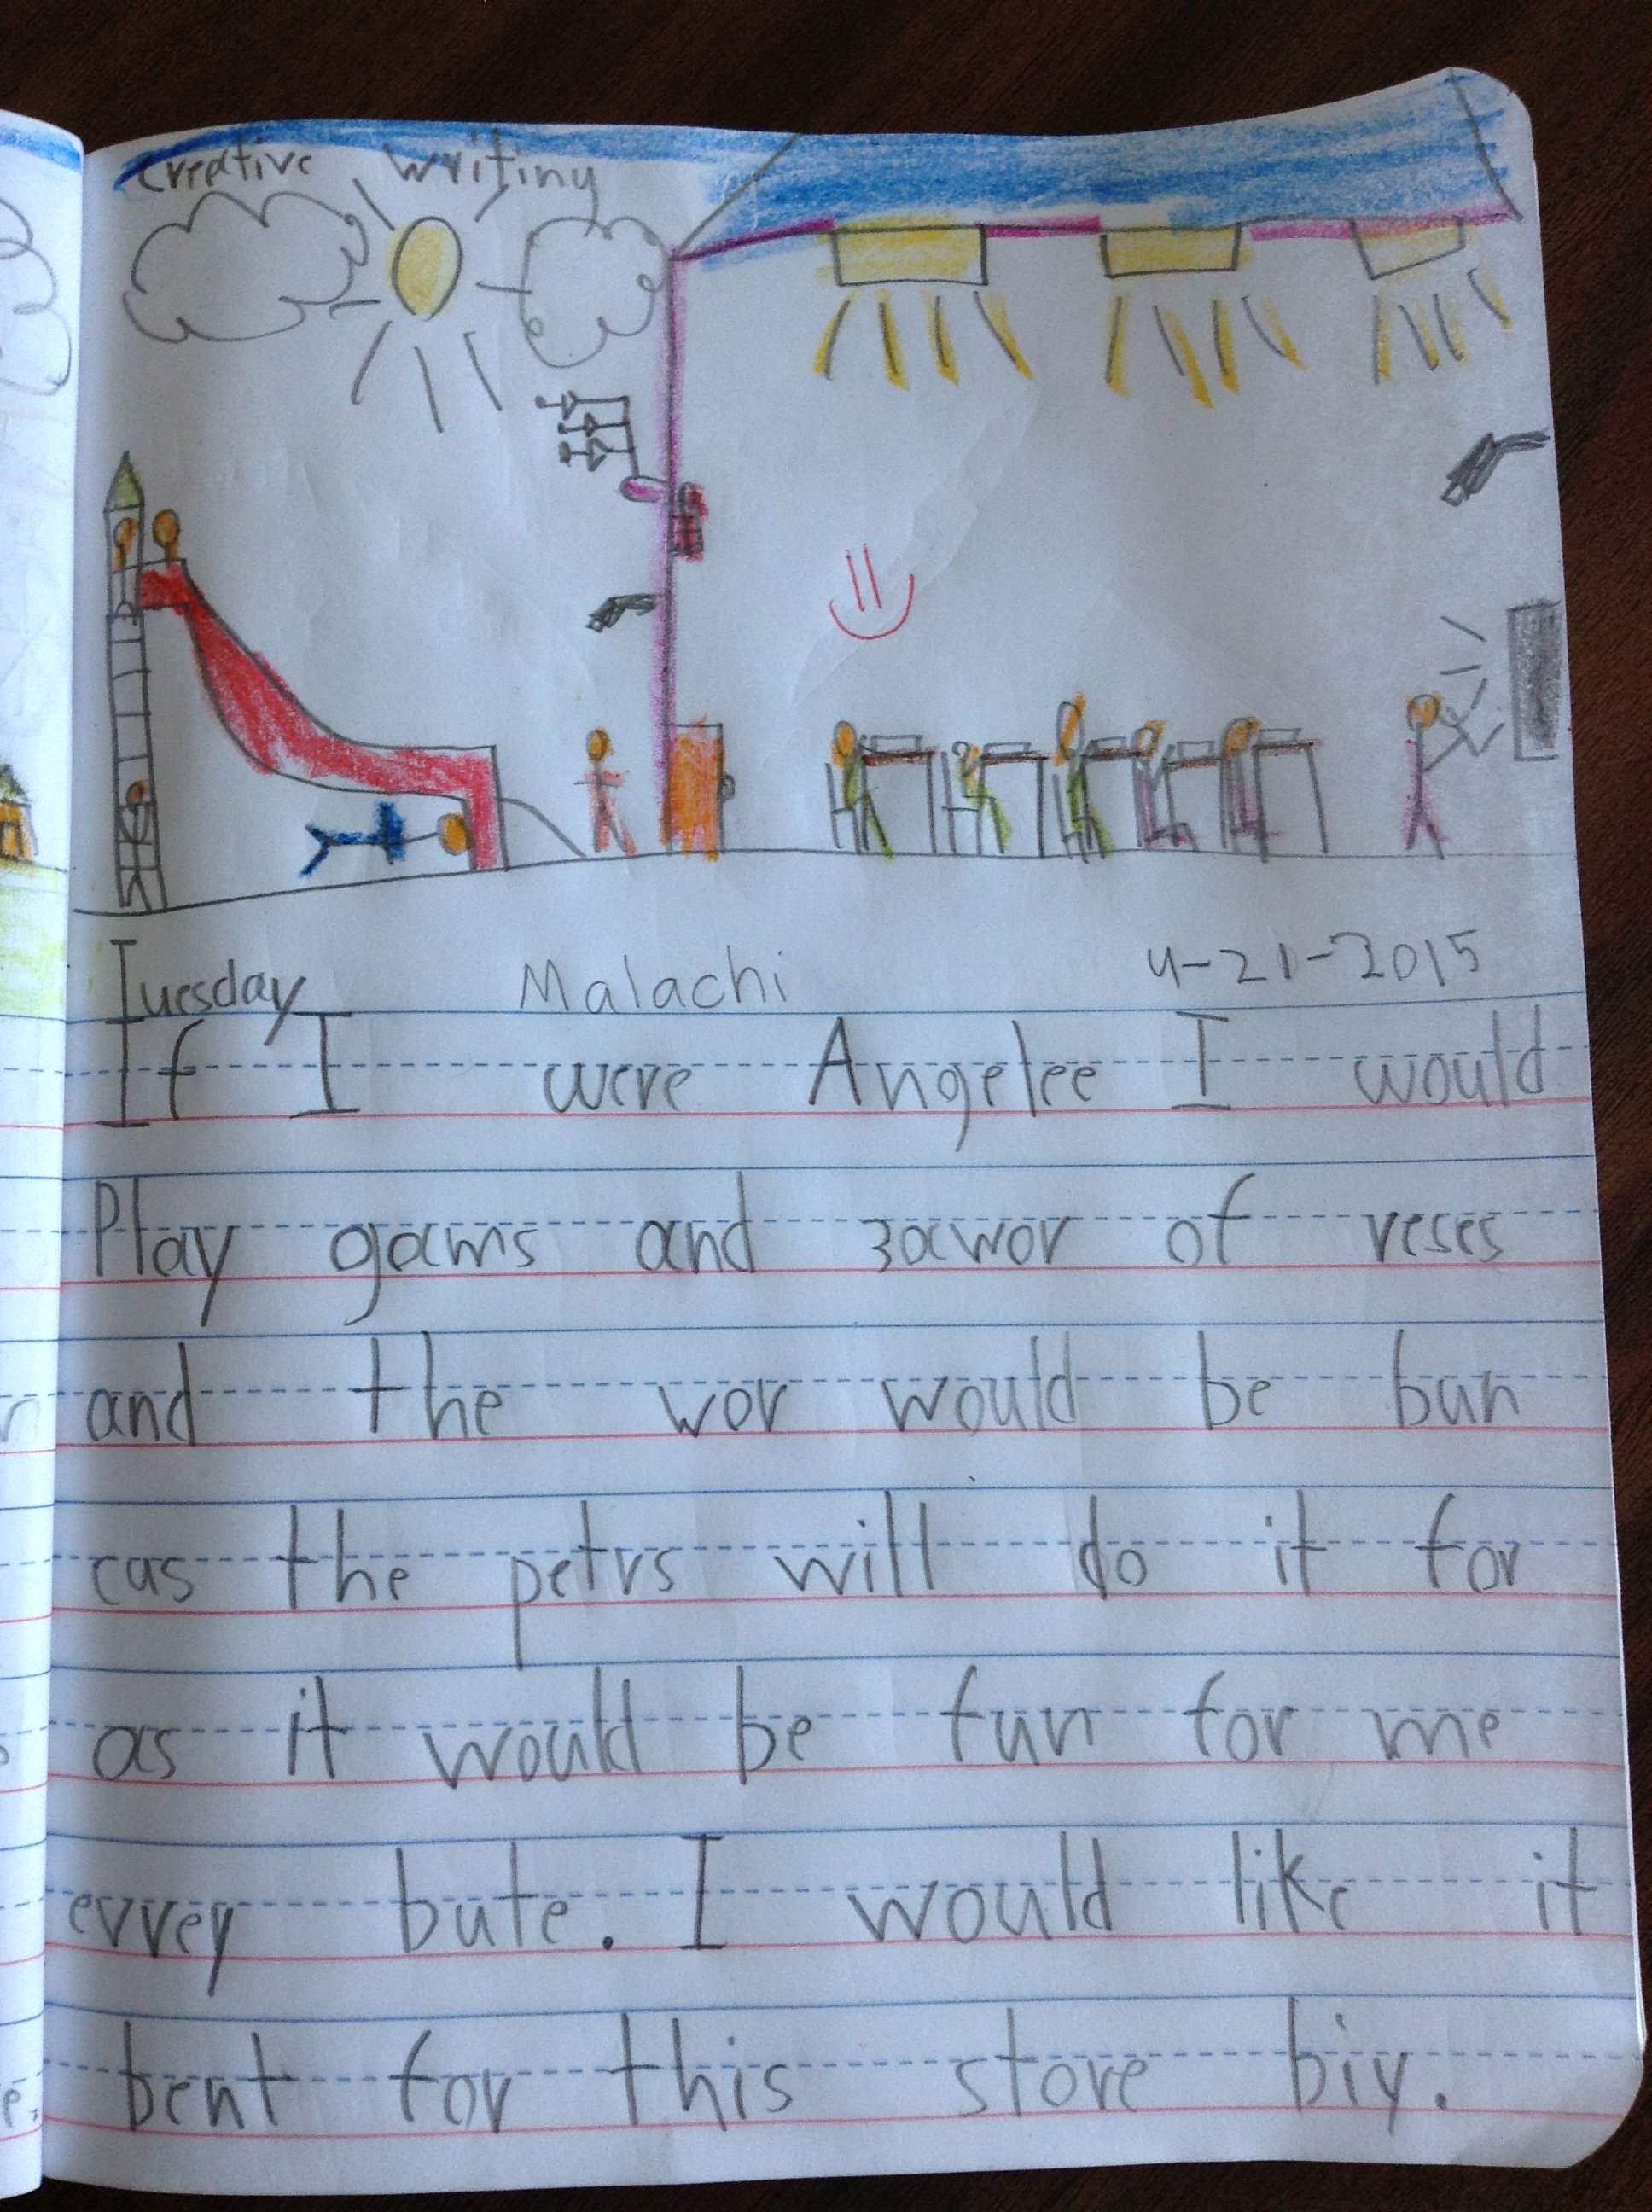 creative writing
Tuesday Malachi 4-21-2015
If I were Angelee I would
Play gams and 3awor of reses
and the wor would be bun
cas the petrs will do it for
as it would be fun for me
evvey bute. I would like it
bent for this store biy.